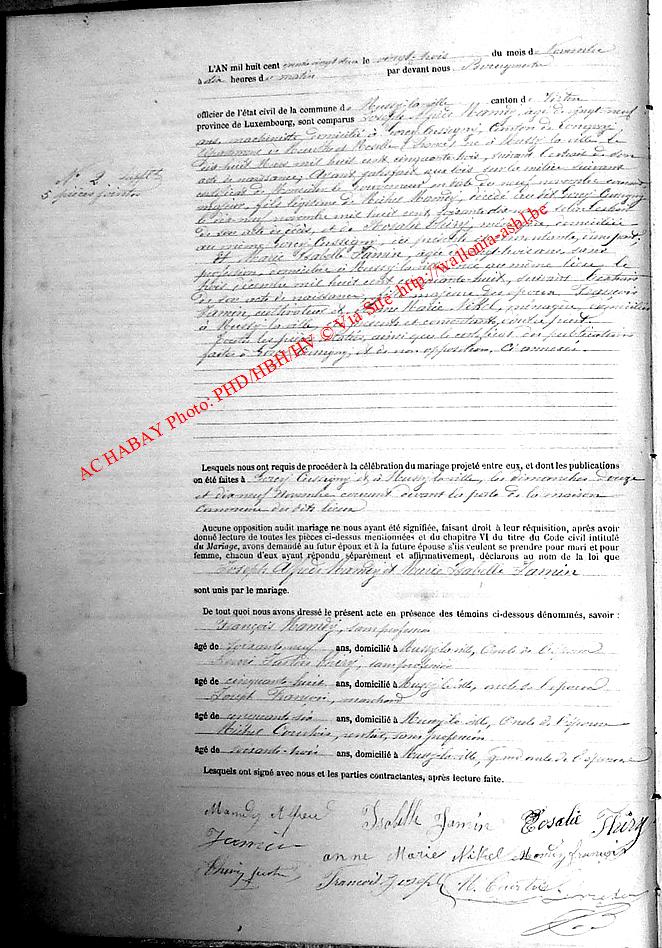 L'AN mil huit cent quatre vingt deux le vingt-trois du mois de Novembre
à dix heures du matin par devant nous Bourgmestre
officier de l'état civil de la commune de Mussy-la-ville canton de Virton
province de Luxembourg, sont comparus Joseph Alfred Mandy, âgé de vingt neuf
ans, machiniste domicilié à Gorcy Cussigny, Canton de Longwy
département de Meurthe et Moselle né à Mussy-la-ville le
dix-huit Mars mil huit cent cinquante-trois, suivant l'extrait de son
acte de naissance, Ayant satisfait aux lois sur la milice suivant
certificat de Monsieur le Gouverneur en date du neuf novembre courant
majeur, fils légitime de Michel Mandy, décédé au dit Gorcy Cussigny
le dix-neuf novembre mil huit cent soixante
de son acte de décès, et de Rosalie Thiry, ménagère, domiciliée
au même Gorcy Cussigny, ici présente et consentante, d'une part;
Et Marie Isabelle Jamin, âgée de vingt trois ans, sans
profession, domiciliée à Mussy-la-ville née au même lieu le
trois décembre mil huit cent cinquante-huit, suivant l'extrait
de son acte de naissance, majeure des époux François
Jamin, cultivateur et Anne Marie Nikel, ménagère, domiciliés
à Mussy-la-ville présents et consentants, d'autre part
Toutes les pièces ainsi que le certificat des publications
faites à Gorcy Cussigny, et de non opposition, ci annexés
N° 2
5 pièces jointes
AC HABAY Photo: PHD/HBH/HV © Via Site http://wallonia-asbl.be
Lesquels nous ont requis de procéder à la célébration du mariage projeté entre eux, et dont les publications
ont été faites à Gorcy Cussigny et à Mussy-la-ville, les dimanches douze
et dix neuf Novembre courant devant la porte de la maison
Commune des dits lieux
Aucune opposition audit mariage ne nous ayant été signifiée, faisant droit à leur réquisition, après avoir
donné lecture de toutes les pièces ci-dessus mentionnées et du chapitre VI du titre du Code civil intitulé
du Mariage, avons demandé au futur époux et à la future épouse s'ils veulent se prendre pour mari et pour
femme, chacun d'eux ayant répondu séparément et affirmativement, déclarons au nom de la loi que
Joseph Alfred Mandy et Marie Isabelle Jamin
sont unis par le mariage.
De tout quoi nous avons dressé le présent acte en présence des témoins ci-dessous dénommés, savoir :
François Mandy, sans profession
âgé de soixante neuf ans, domicilié à Mussy-la-ville, Oncle de l'époux
Thiry, sans profession
âgé de cinquante-huit ans, domicilié à Mussy-la-ville, oncle de l'époux
Joseph François, marchand
âgé de cinquante-six ans, domicilié à Mussy-la-ville, Oncle de l'épouse
Michel Courtois, rentier, sans profession
âgé de soixante-trois ans, domicilié à Mussy-la-ville, grand oncle de l'épouse
Lesquels ont signé avec nous et les parties contractantes, après lecture faite.
Mandy Alfred Isabelle Jamin Rosalie Thiry
Jamin anne Marie Nikel Mandy françois
Thiry François Joseph M. Courtois